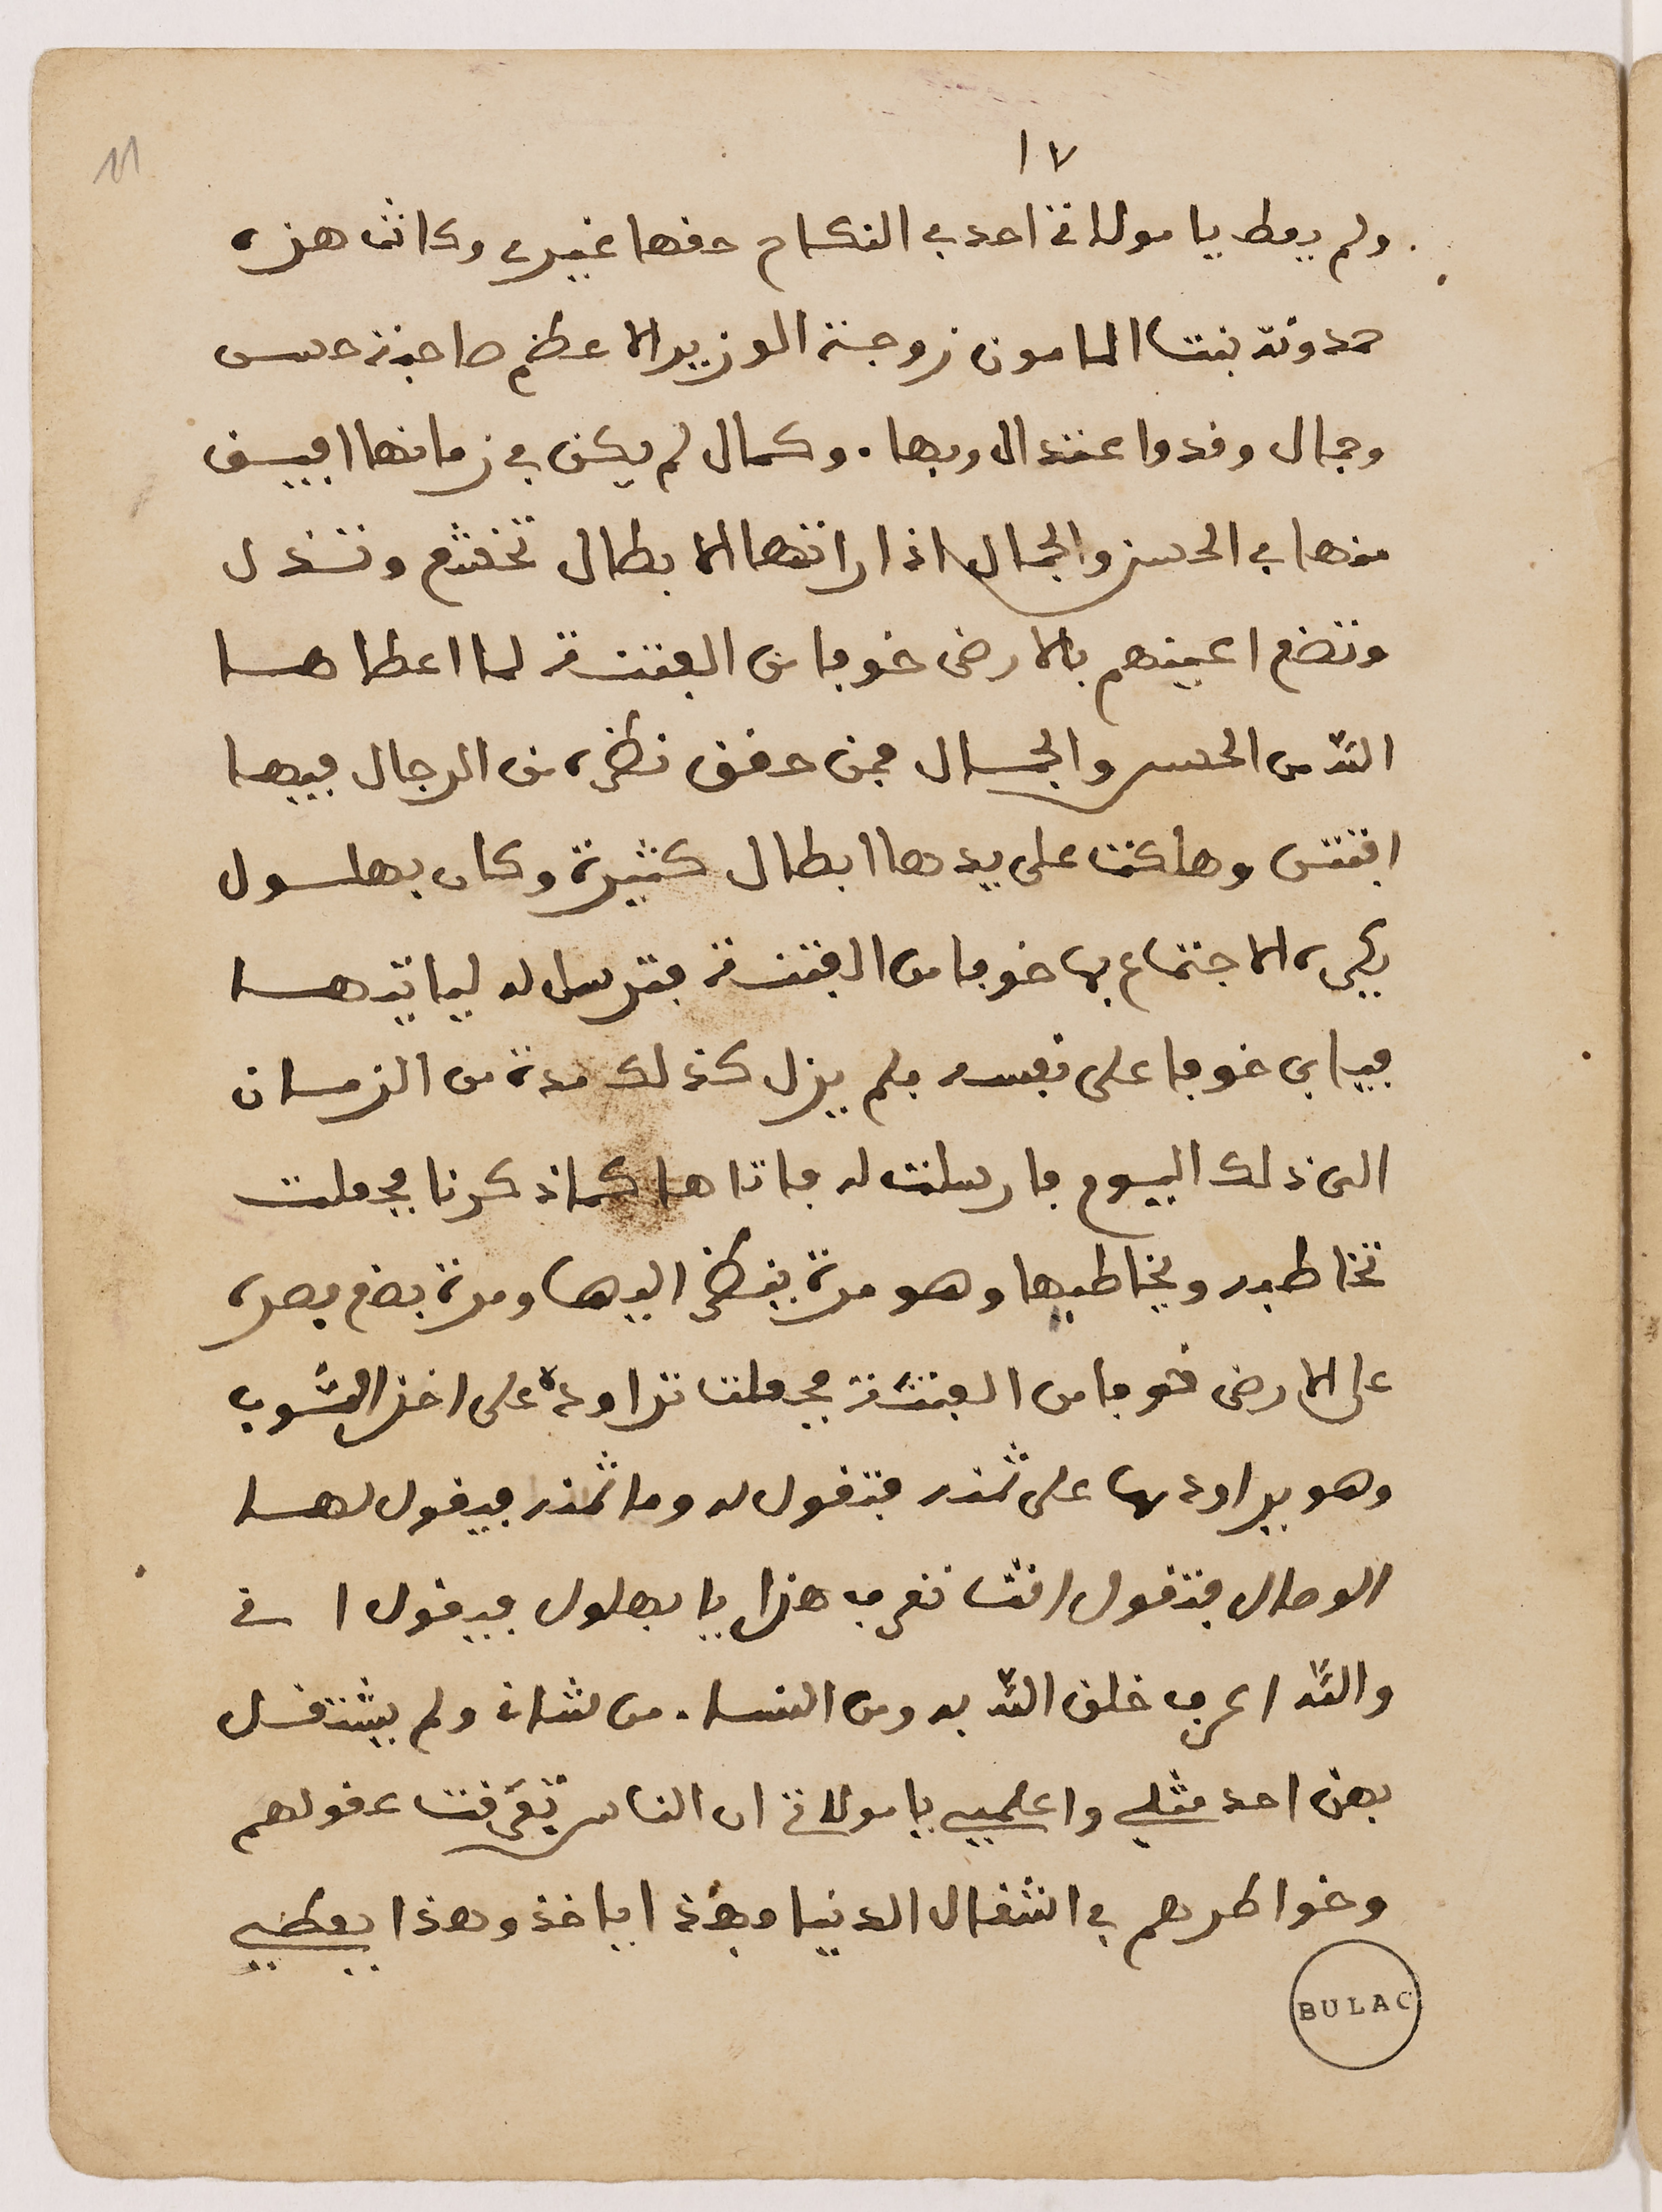 ١٧
11
ولم يعط يا مولاتي احد في النكاح حقها غيري وكانت هذه
حمدونة بنت المامون زوجة الوزير الاعظم صاحبة حسن
وجمال وقد واعتدال وبهاء وكمال لم يكن في زمانها افيق
منها في الحسن والجمال اذا راتها الابطال تخشع وتذل
وتضع اعينهم بالارض خوفا من الفتنة لما اعطاها
الله من الحسن والجمال فمن حقق نظره من الرجال فيها
افتتن وهلكت على يدها ابطال كثيرة وكان بهلول
يكره الاجتماع بها خوفا من الفتنة فترسل له ليأتيها
فيابى خوفا على نفسه فلم يزل كذلك مدة من الزمان
الى ذلك اليوم فارسلت له فاتاها كما ذكرنا فجعلت
تخاطبه ويخاطبها وهو مرة ينظر اليها ومرة يضع بصره
على الارض خوفا من الفتنة فجعلت تراوده على اخذ الثوب
وهو يراودها على ثمنه فتقول له وما ثمنه فيقول لها
الوصال فتقول انت تعرف هذا يا بهلول فيقول اني
والله اعرف خلق الله به ومن النساء من شاني ولم يشتغل
بهن احد مثلي واعلمي يا مولاتي ان الناس تفرقت عقولهم
وخواطرهم في اشغال الدنيا فهذا ياخذ وهذا يعطي
BULAC